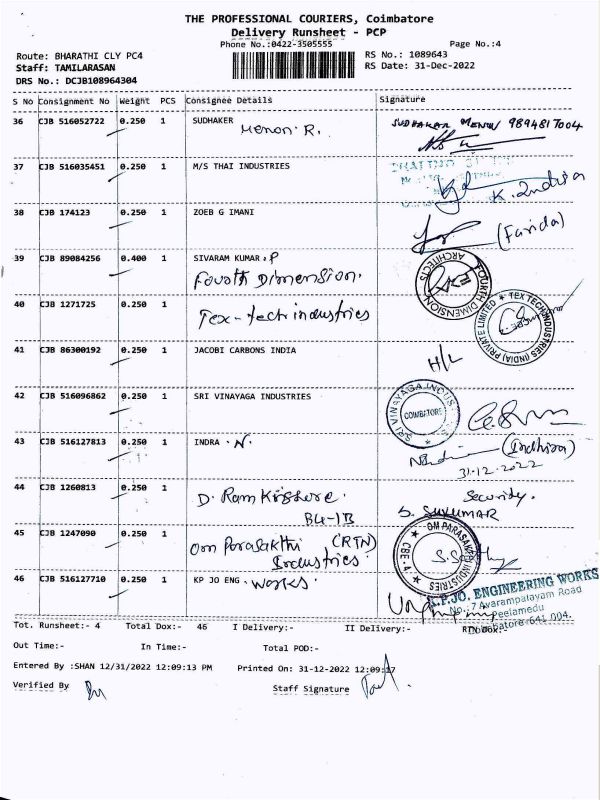 THE PROFESSIONAL COURIERS, Coimbatore
Delivery Runsheet - PCP
Phone No.:0422-3505555
Page No.:4
Route: BHARATHI CLY PC4
RS No.: 1089643
Staff: TAMILARASAN
RS Date: 31-Dec-2022
DRS No.: DCJB108964304
S No Consignment No Weight PCS Consignee Details Signature
36 CJB 516052722 0.250 1 SUDHAKER SUDHAKAR MENON 9894817004
Menon R.
37 CJB 516035451 0.250 1 M/S THAI INDUSTRIES
K. Indira
38 CJB 174123 0.250 1 ZOEB G IMANI
(Farida)
39 CJB 89084256 0.400 1 SIVARAM KUMAR . P
Fourth Dimension.
FOURTH DIMENSION ARCHITECTS
40 CJB 1271725 0.250 1
Tex-tech industries
TEX TECH INDUSTRIES (INDIA) PRIVATE LIMITED
41 CJB 86300192 0.250 1 JACOBI CARBONS INDIA
H/L
42 CJB 516096862 0.250 1 SRI VINAYAGA INDUSTRIES
SRI VINAYAGA INDUS
COIMBATORE
43 CJB 516127813 0.250 1 INDRA . N.
(Indhira)
31-12-2022
44 CJB 1260813 0.250 1
D. Ram Kishore.
Security.
B4-1B
S. SUKUMAR
45 CJB 1247090 0.250 1
Om Parasakthi (RTN)
Industries.
OM PARASAKTHI INDUSTRIES
CBE - 4
46 CJB 516127710 0.250 1 KP JO ENG . works.
K.P.JO. ENGINEERING WORKS
No.: 7 Avarampalayam Road
Peelamedu
Coimbatore-641 004.
Tot. Runsheet:- 4 Total Dox:- 46 I Delivery:- II Delivery:- RTN Dox:-
Out Time:- In Time:- Total POD:-
Entered By :SHAN 12/31/2022 12:09:13 PM Printed On: 31-12-2022 12:09:17
Verified By Staff Signature